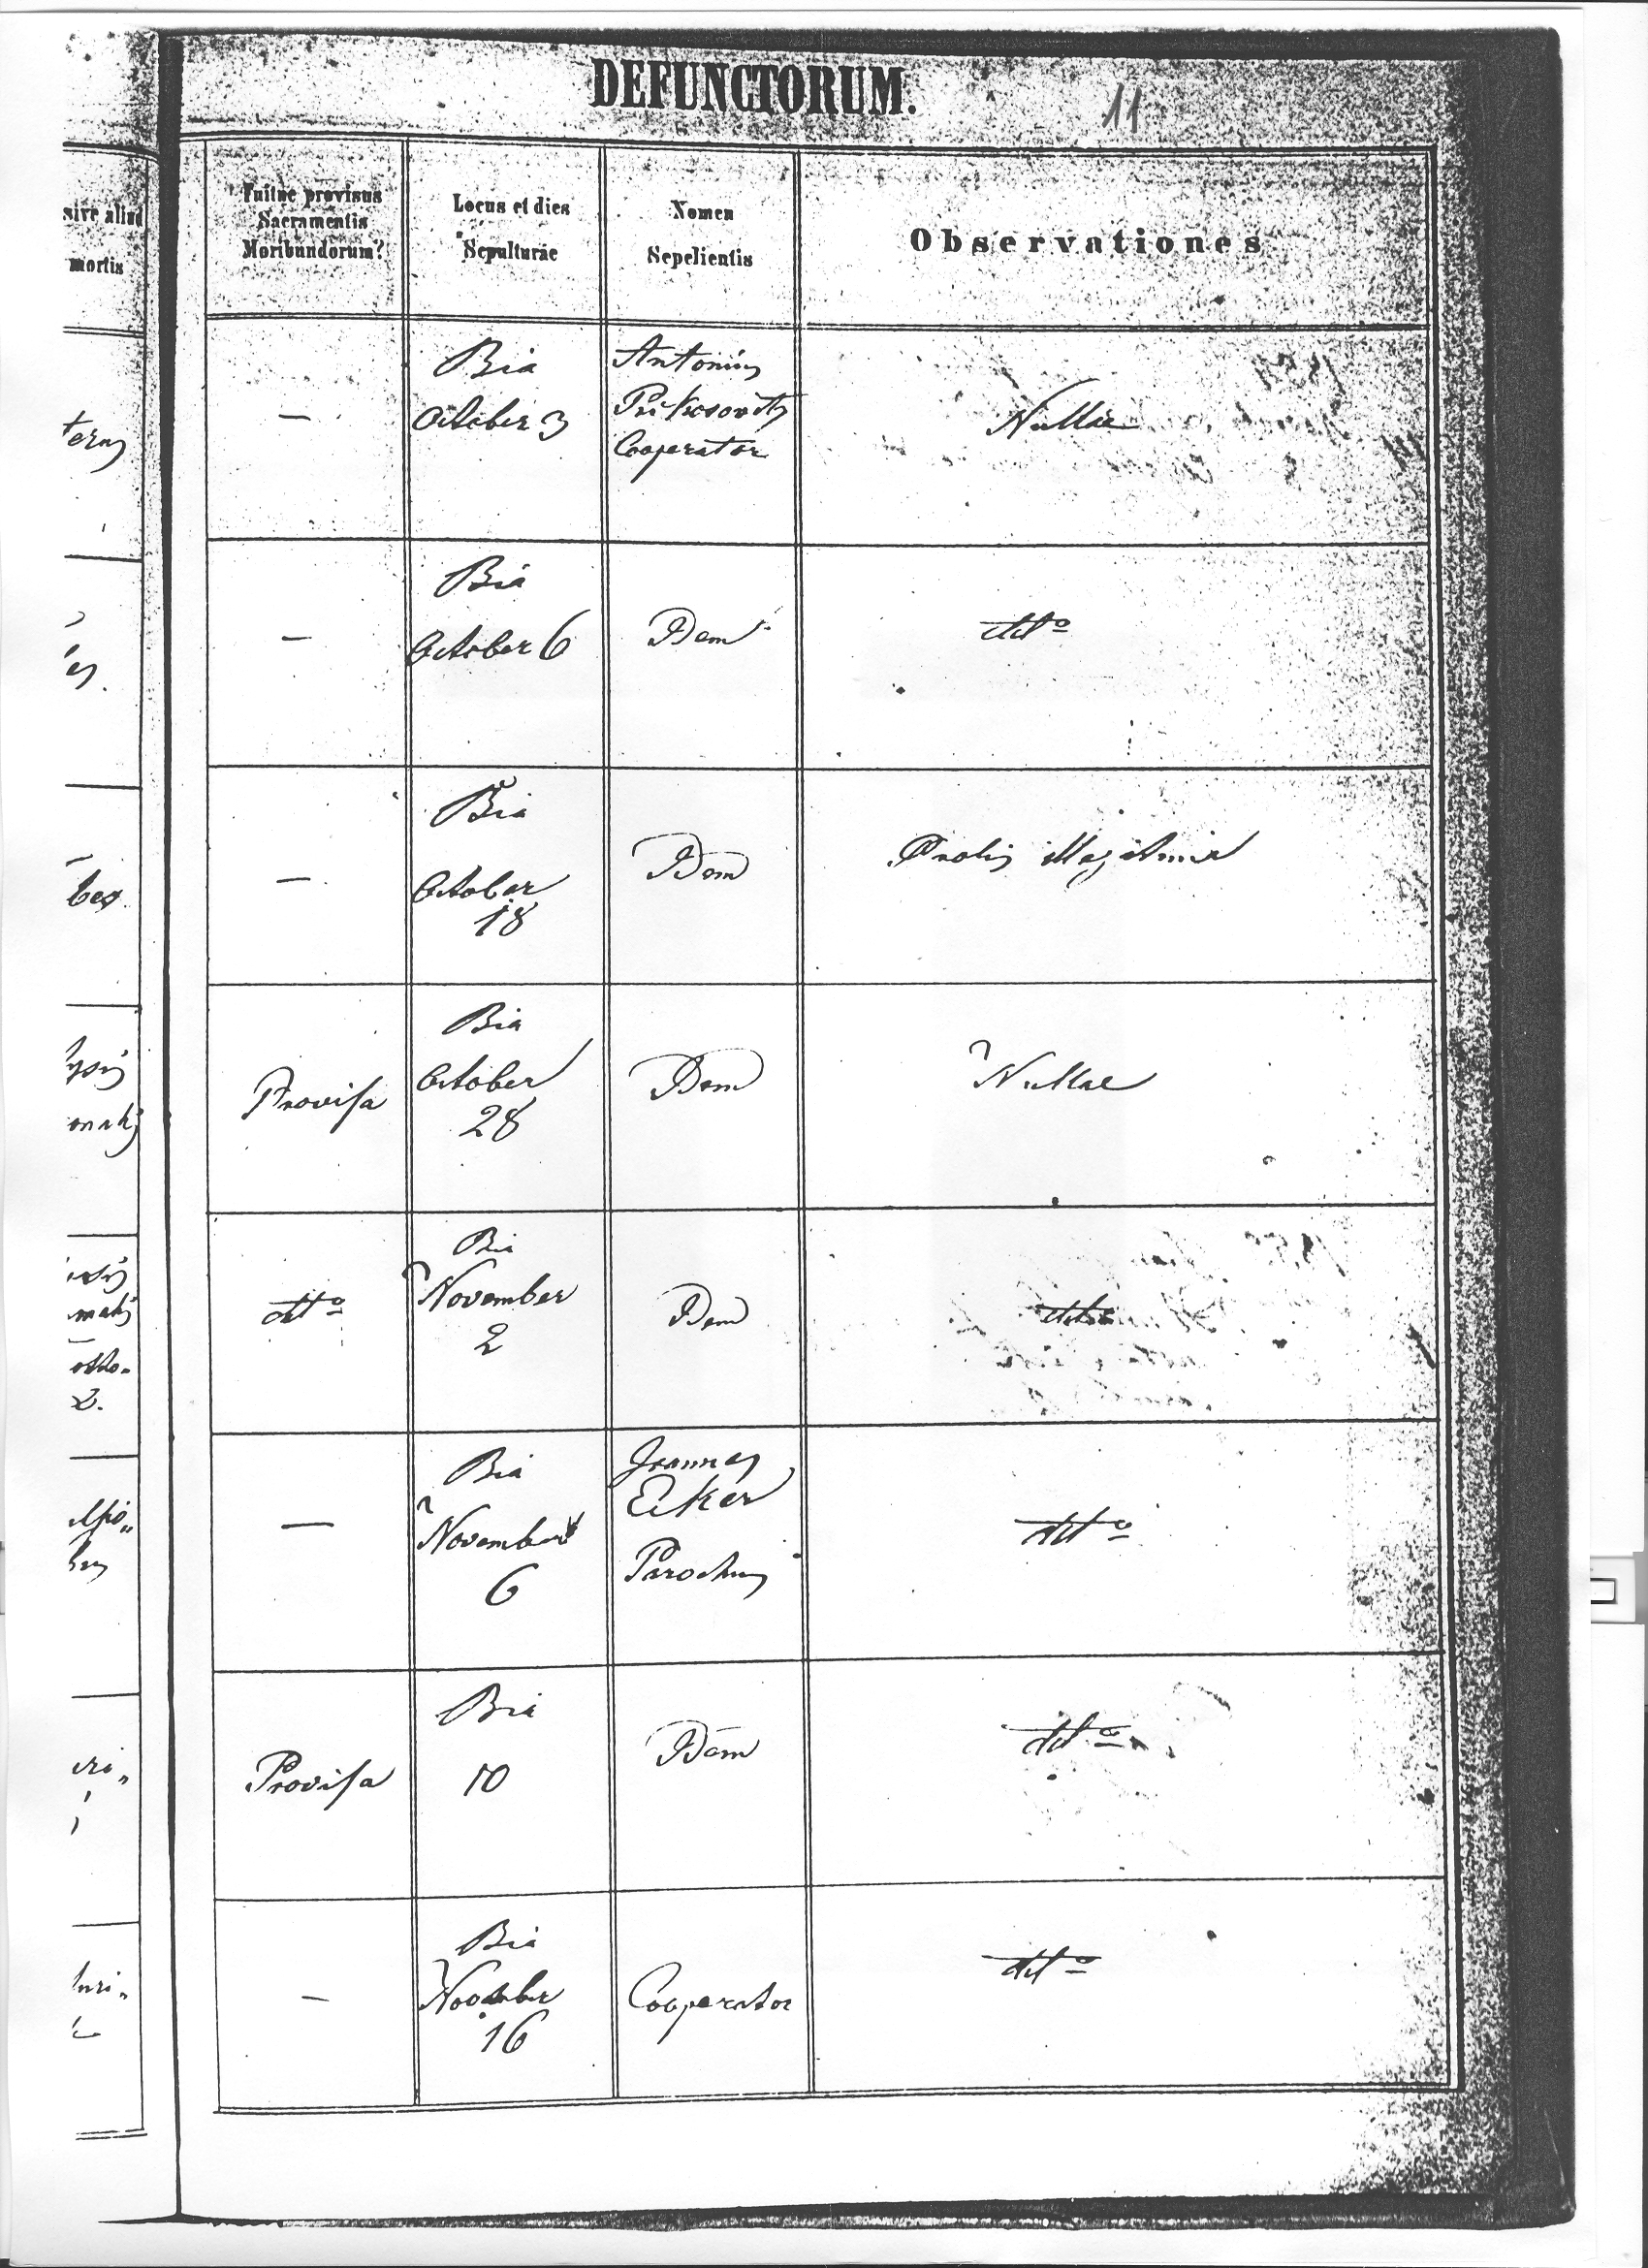 DEFUNCTORUM.
11
sive aliud
mortis
Fuitne provisus
Sacramentis
Moribundorum?
Locus et dies
Sepulturae
Nomen
Sepelientis
Observationes
—
Bia
October 3
Antonius
Cooperator
Nullae
—
Bia
October 6
Idem
dtto
—
Bia
October
18
Idem
Prolis illegitima
Provisa
Bia
October
28
Idem
Nullae
dtto
Bia
November
2
Idem
dtto
—
Bia
November
6
Joannes
Eiker
Parochus
dtto
Provisa
Bia
10
Idem
dtto
—
Bia
November
16
Cooperator
dtto